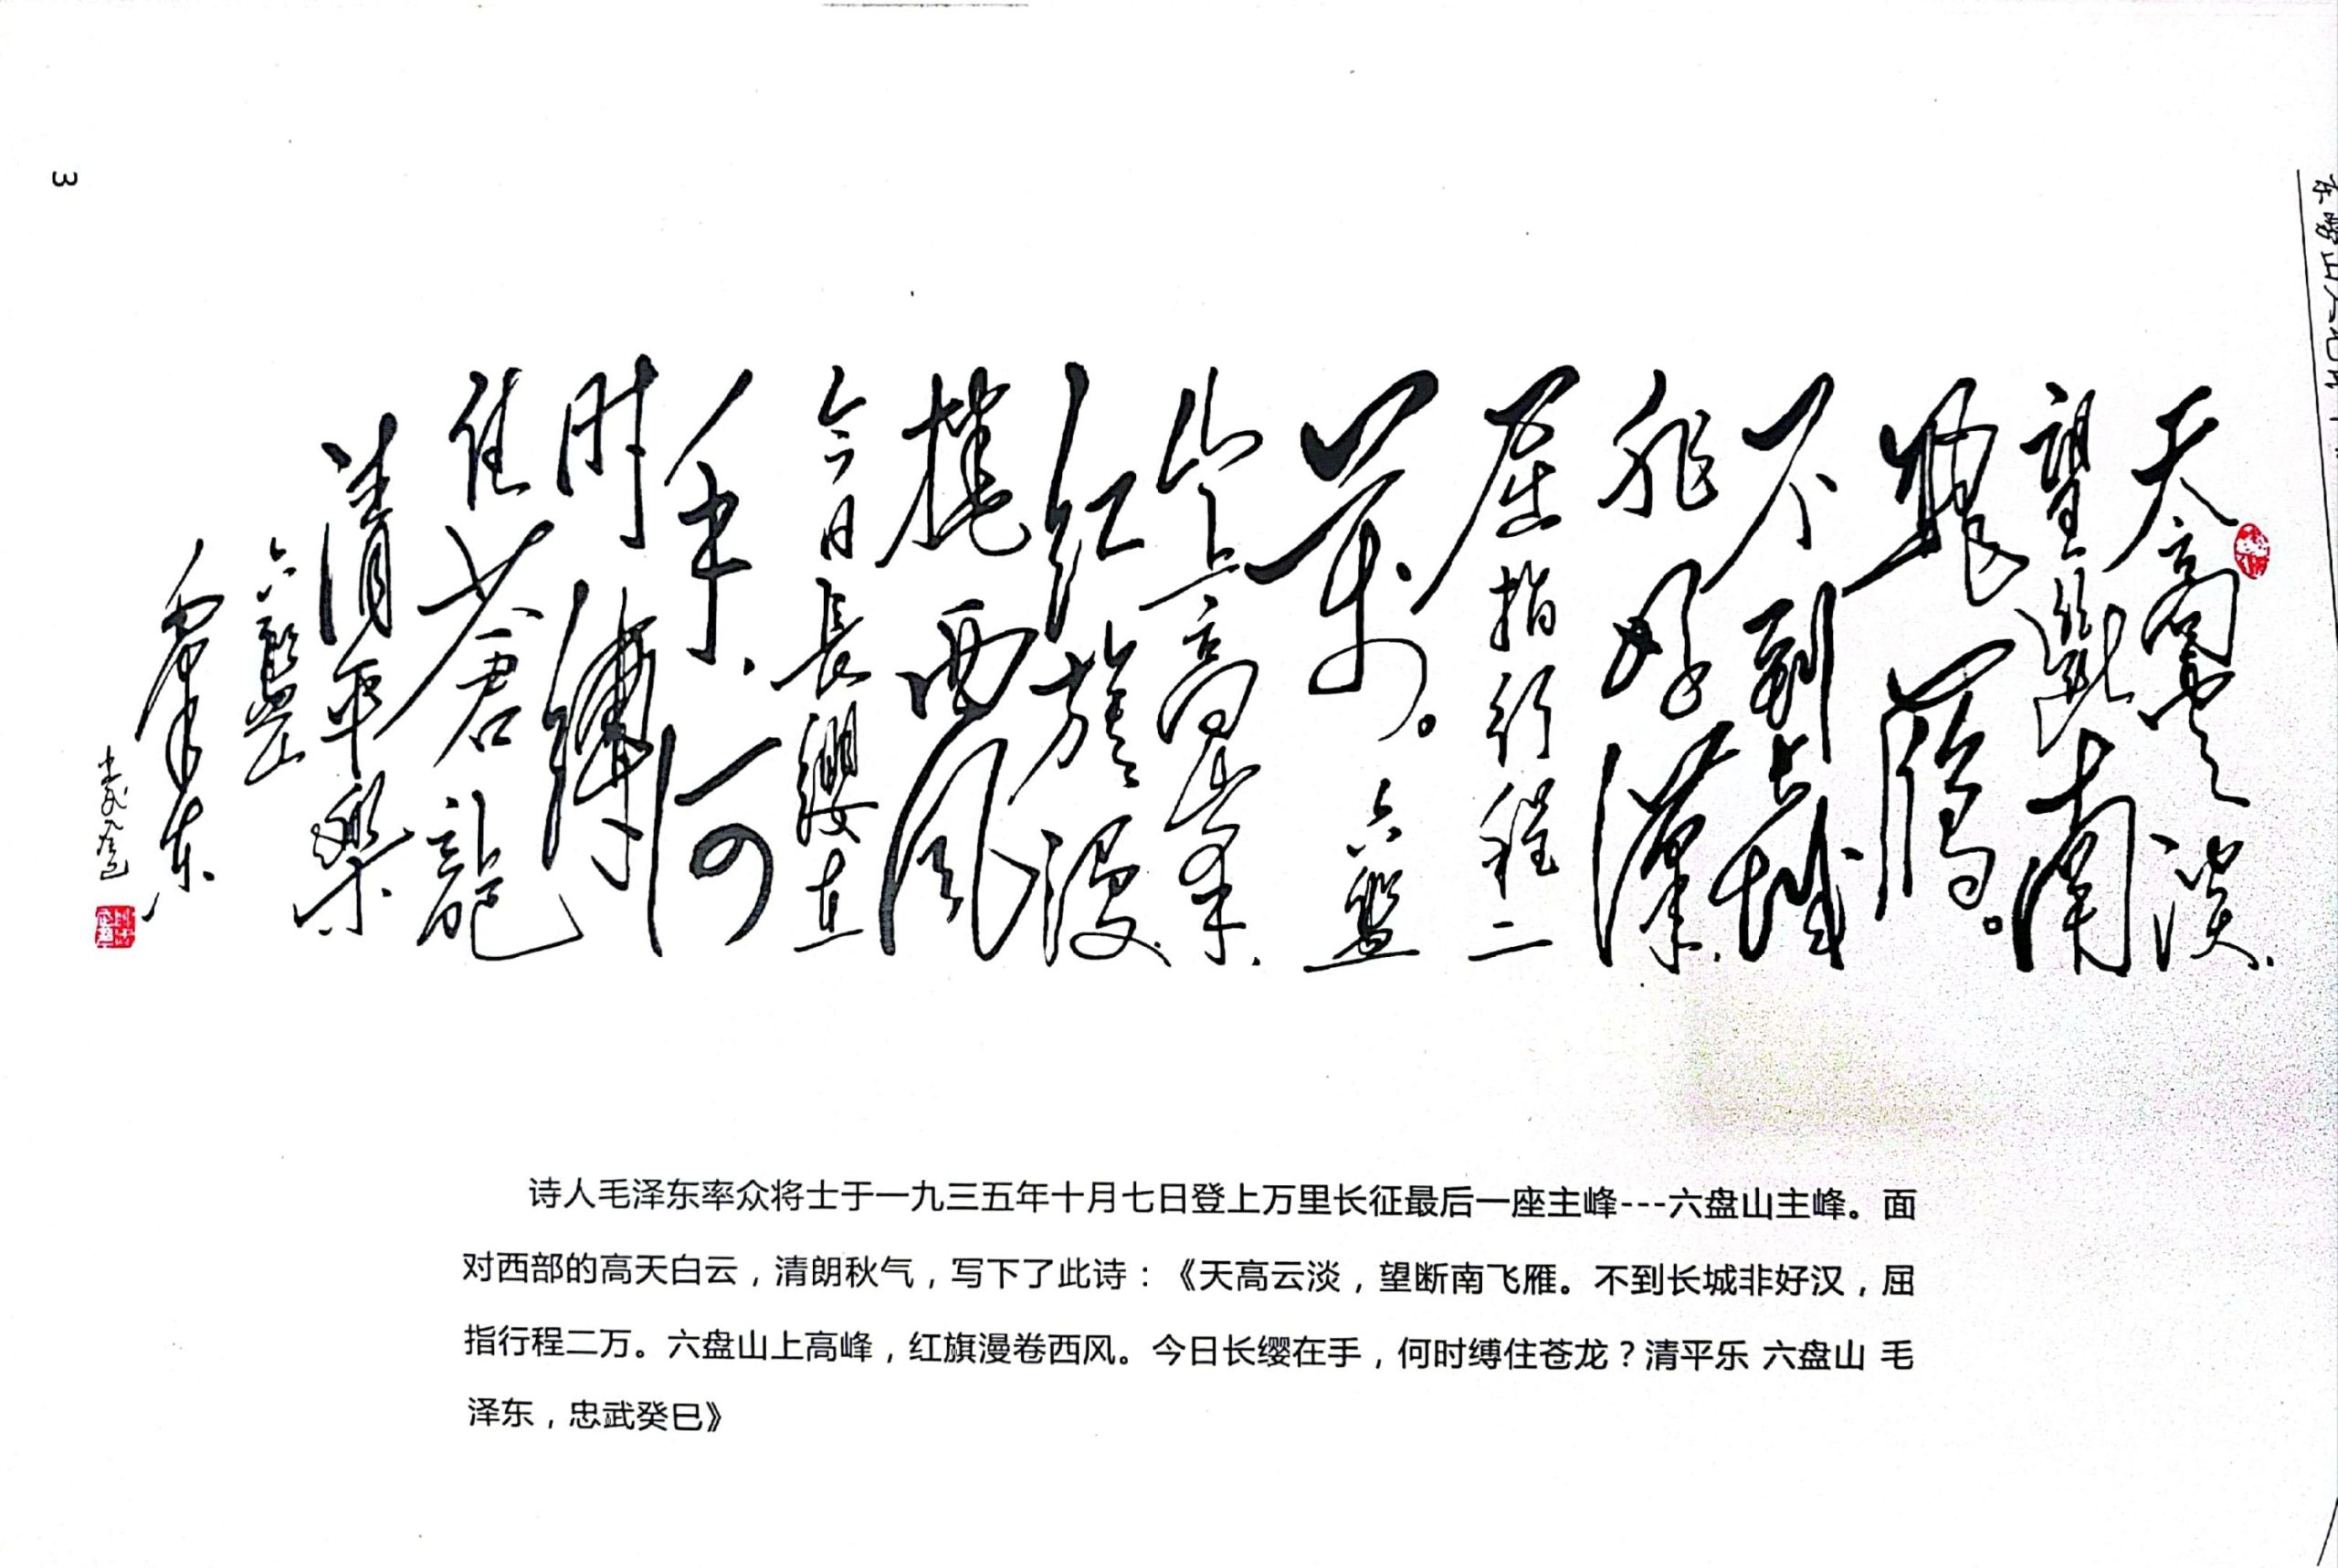 天高雲淡
望斷南
飛雁。
不到长城
非好漢
屈指行程二
萬。六盘
山上高峯
红旗漫
捲西風
今日長纓在
手,何
时縛
住蒼龍
清平樂
六盘山
毛泽东
忠武癸巳
3
诗人毛泽东率众将士于一九三五年十月七日登上万里长征最后一座主峰---六盘山主峰。面
对西部的高天白云，清朗秋气，写下了此诗：《天高云淡，望断南飞雁。不到长城非好汉，屈
指行程二万。六盘山上高峰，红旗漫卷西风。今日长缨在手，何时缚住苍龙？清平乐 六盘山 毛
泽东，忠武癸巳》